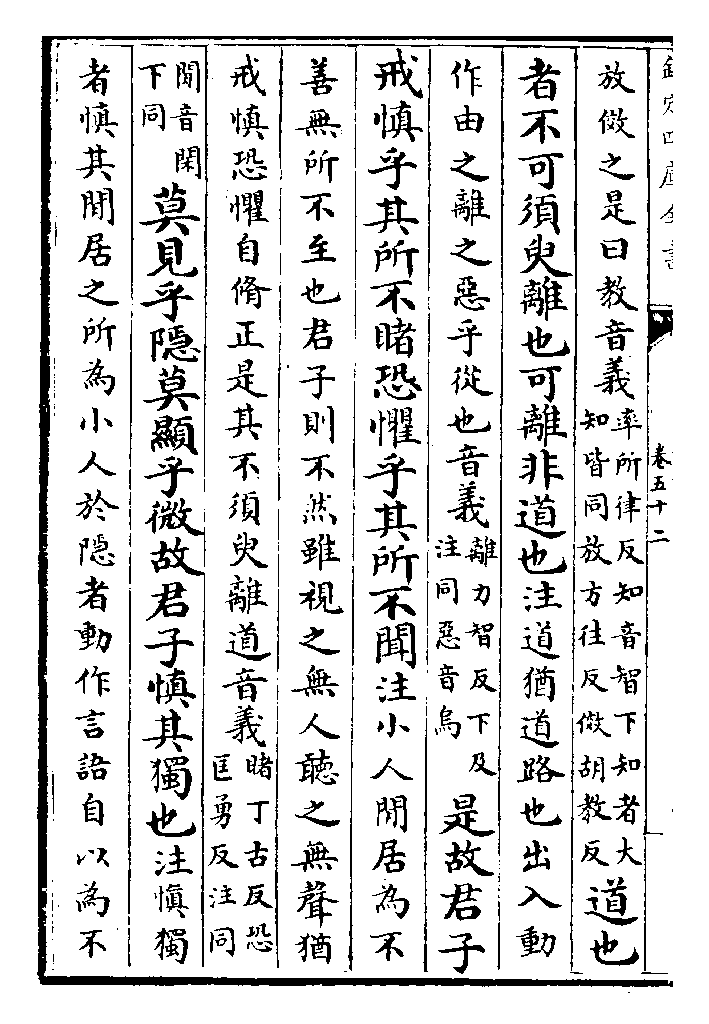 欽定四庫全書
卷五十二
放傚之是曰教音義率所律反知音智下知者大知皆同放方往反傚胡教反道也
者不可須臾離也可離非道也注道猶道路也出入動
作由之離之惡乎從也音義離力智反下及注同惡音烏是故君子
戒慎乎其所不睹恐懼乎其所不聞注小人閒居為不
善無所不至也君子則不然雖視之無人聽之無聲猶
戒慎恐懼自脩正是其不須臾離道音義睹丁古反恐匡勇反注同
閒音閑下同莫見乎隱莫顯乎微故君子慎其獨也注慎獨
者慎其閒居之所為小人於隱者動作言語自以為不